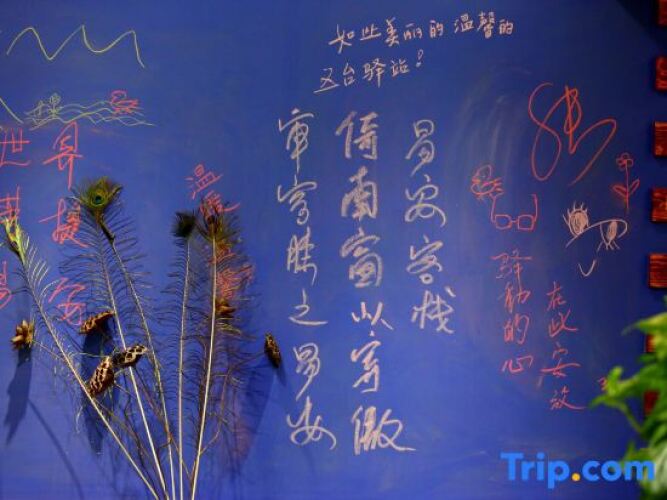 如此美丽的温馨的
五台驿站!
易安客栈
倚南窗以寄傲
审容膝之易安
驿动的心
在此安放
温
世
界
Trip.com